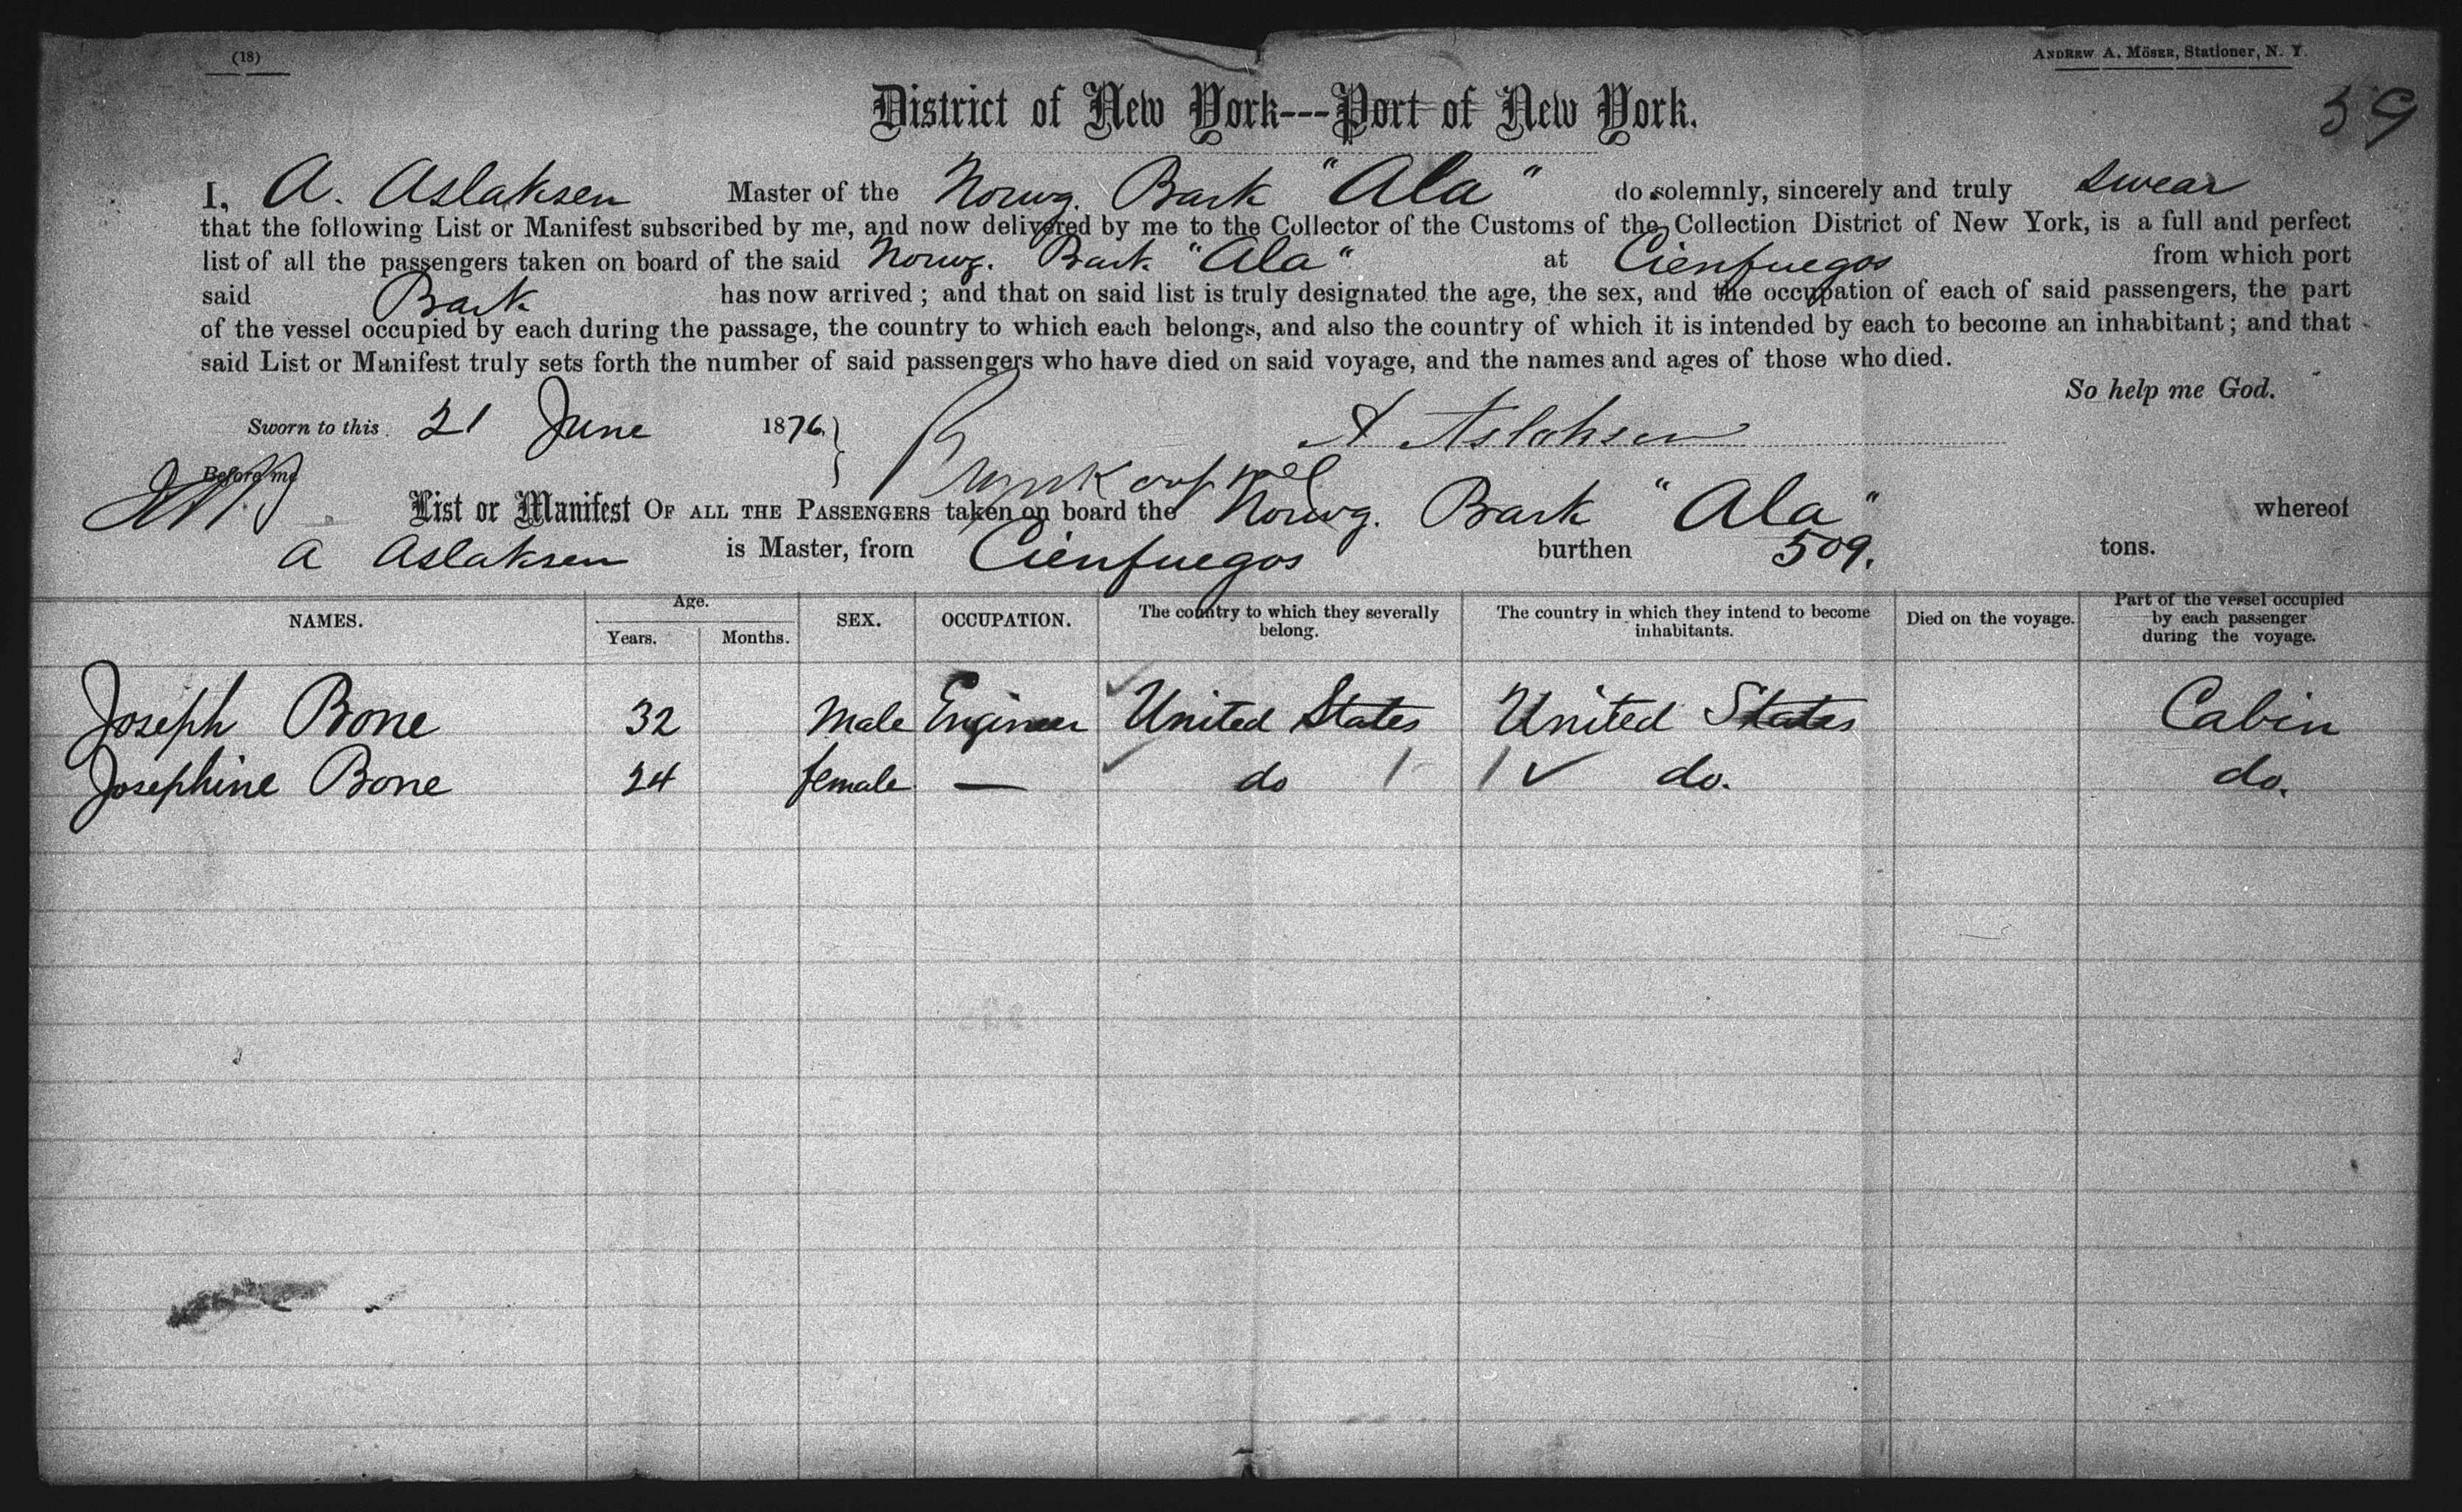 (18)
ANDREW A. MÖSER, Stationer, N. Y.
59
District of New York---Port of New York.
I, A. Aslaksen Master of the Norwg. Bark "Ala" do solemnly, sincerely and truly swear
that the following List or Manifest subscribed by me, and now delivered by me to the Collector of the Customs of the Collection District of New York, is a full and perfect
list of all the passengers taken on board of the said Norwg. Bark "Ala" at Cienfuegos from which port
said Bark has now arrived; and that on said list is truly designated the age, the sex, and the occupation of each of said passengers, the part
of the vessel occupied by each during the passage, the country to which each belongs, and also the country of which it is intended by each to become an inhabitant; and that
said List or Manifest truly sets forth the number of said passengers who have died on said voyage, and the names and ages of those who died.
So help me God.
Sworn to this 21 June 1876 } A Aslaksen
Before me
List or Manifest OF ALL THE PASSENGERS taken on board the Norwg. Bark "Ala" whereof
A Aslaksen is Master, from Cienfuegos burthen 509. tons.
NAMES. Age. Years. Months. SEX. OCCUPATION. The country to which they severally belong. The country in which they intend to become inhabitants. Died on the voyage. Part of the vessel occupied by each passenger during the voyage.
Joseph Bone 32 Male Engineer United States United States Cabin
Josephine Bone 24 female — do 1 1 ✓ do. do.